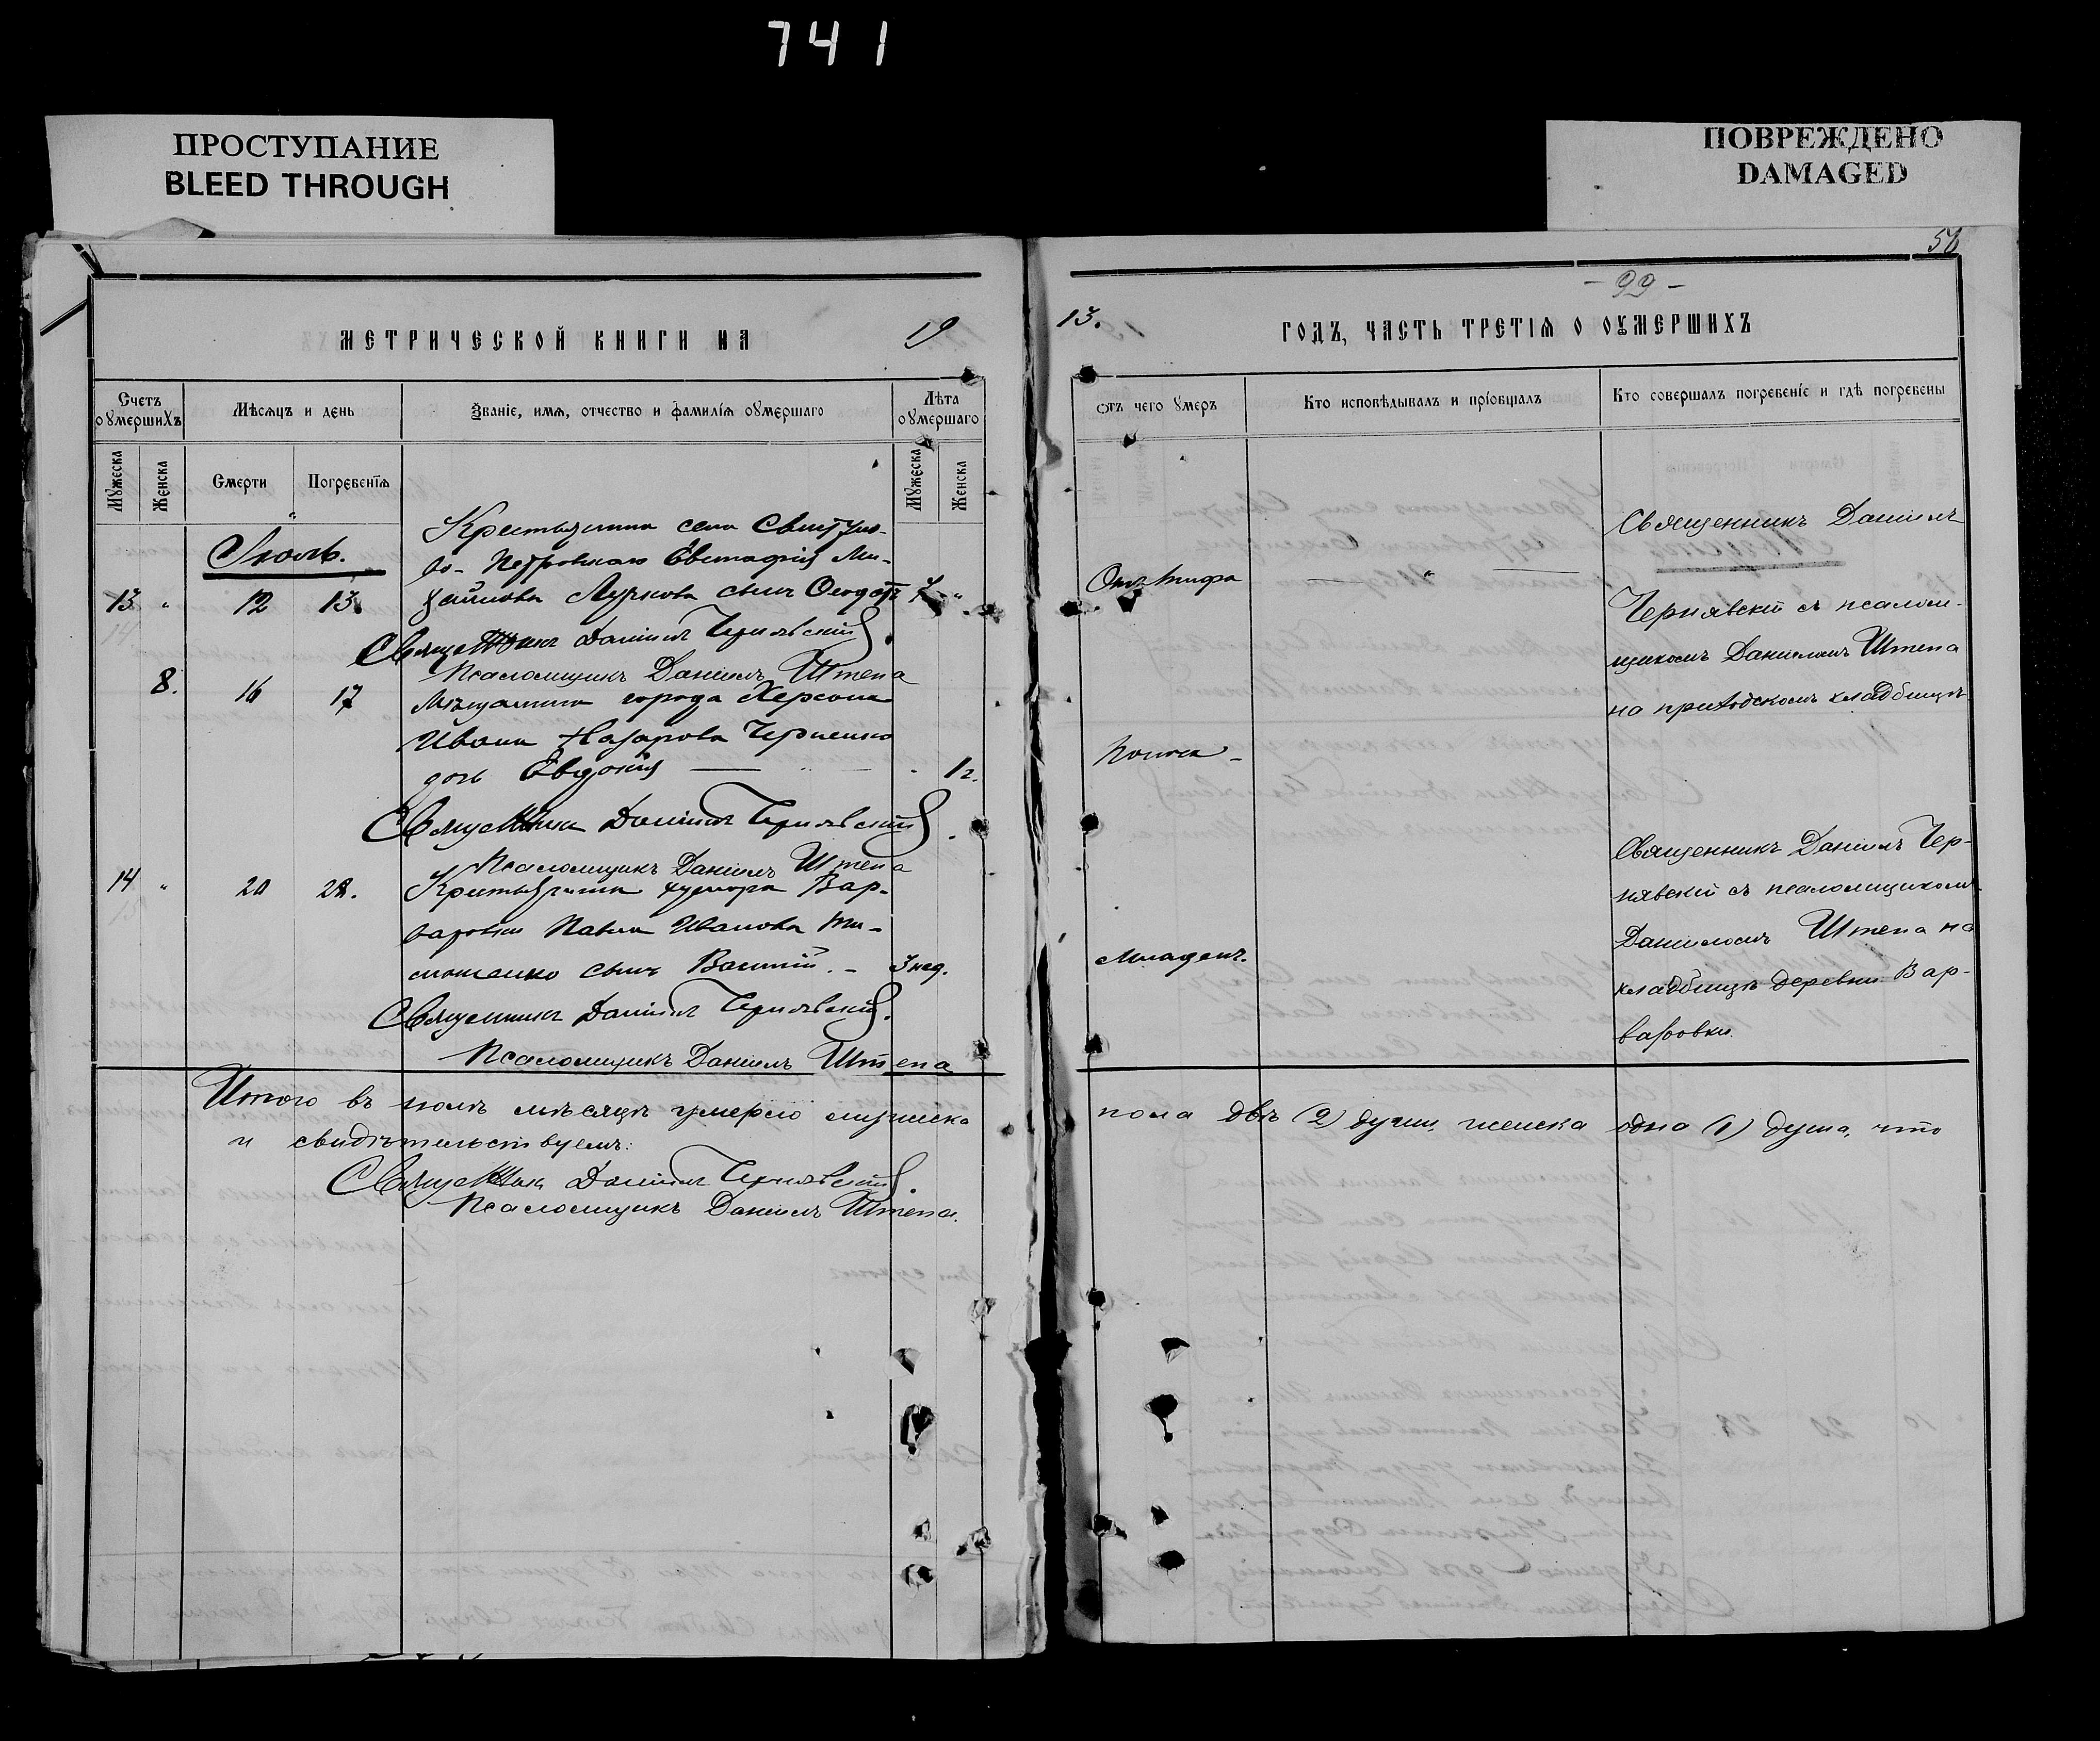 741
ПРОСТУПАНИЕ
BLEED THROUGH
ПОВРЕЖДЕНО
DAMAGED
56
- 99 -
МЕТРИЧЕСКОЙ КНИГИ НА 19
13. ГОДЪ, ЧАСТЬ ТРЕТІѦ О ОУМЕРШИХЪ
Счетъ оумершихъ
Мѣсяцъ и день
Званіе, имѧ, отчество и фамиліѧ оумершаго
Лѣта оумершаго
Мужеска
Женска
Смерти
Погребенїѧ
Мужеска
Женска
отъ чего умеръ
Кто исповѣдывалъ и пріобщалъ
Кто совершалъ погребеніе и гдѣ погребены
Іюль.
Крестьянина села Свистуно-
во-Петровскаго Евстафія Ми-
13 " 12 13 хайлова Лучкова сынъ Ѳеодотъ
Священникъ Даніилъ Чернявскій.
Псаломщикъ Даніилъ Штепа
8. 16 17 Мѣщанина города Херсона
Ивана Назарова Черненко
дочь Евдокія 1 г.
Священникъ Даніилъ Чернявскій.
Псаломщикъ Даніилъ Штепа
14 " 20 Крестьянина хутора Вар-
варовки Павла Иванова Ти-
мошенко сынъ 3 нед.
Священникъ Даніилъ Чернявскій.
Псаломщикъ Даніилъ Штепа
Отъ тифа
Поноса
Младенч.
Священникъ Даніилъ
Чернявскій съ псалом-
щикомъ Даніиломъ Штепа
на приходскомъ кладбищѣ
Священникъ Даніилъ Чер-
нявскій съ псаломщикомъ
Даніиломъ Штепа на
кладбищѣ деревни Вар-
варовки.
Итого въ іюлѣ мѣсяцѣ умерло мужеска
пола двѣ (2) души, женска одна (1) душа, что
и свидѣтельствуемъ:
Священникъ Даніилъ Чернявскій.
Псаломщикъ Даніилъ Штепа.